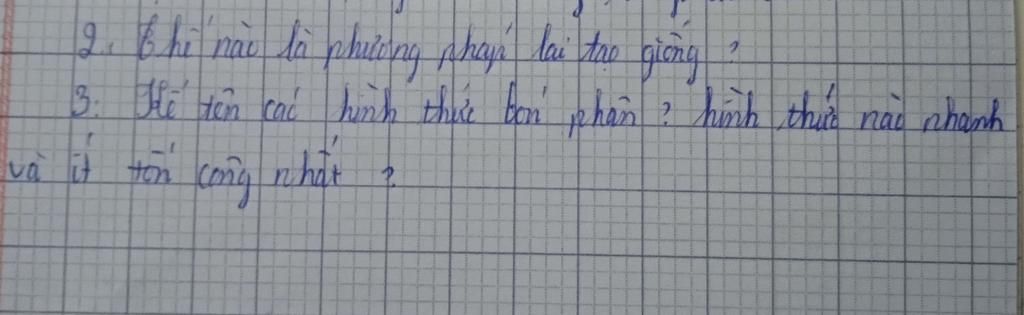 2. Thế nào là phương pháp lai tạo giống ?
3. Kể tên các hình thức bón phân ? hình thức nào nhanh
và ít tốn công nhất ?